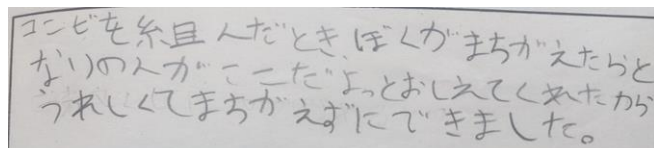 コンビを組んだとき、ぼくがまちがえたらと
なりの人がここだよっとおしえてくれたから
うれしくてまちがえずにできました。